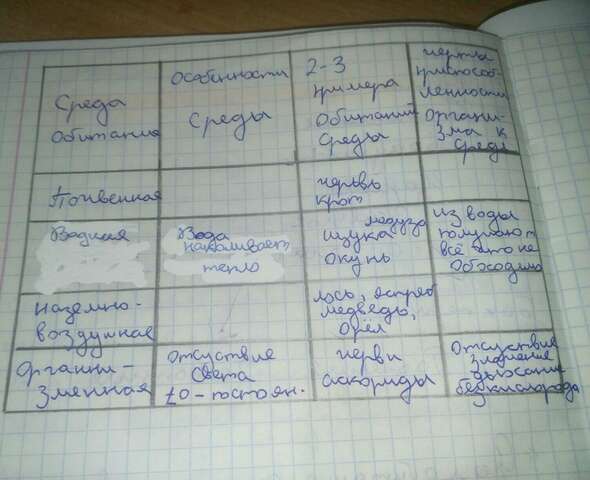 Среда
Обитания
Особенности
Среды
2-3
примера
Обитаний
среды
черты
приспособ-
ленности
органи-
зма к
среде
Почвенная
червь
крот
Водная
Вода
накапливает
тепло
медуза
щука
окунь
из воды
получают
всё что не
обходимо
наземно-
воздушная
лось, ястреб
медведь,
Орёл
Органи-
зменная
Отсуствие
света
t0-постоян.
черви
аскориды
Отсуствие
зрения
дыхание
без кислорода